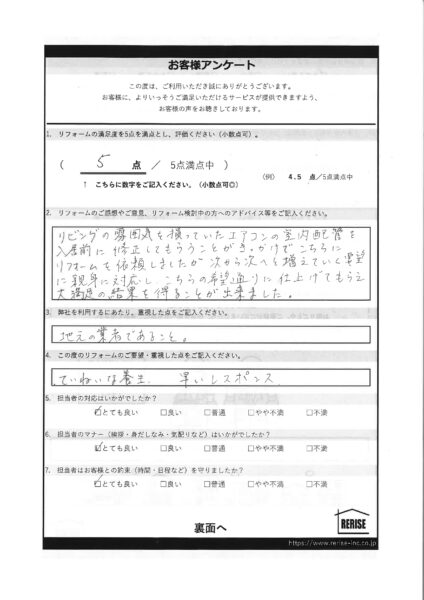 お客様アンケート
この度は、ご利用いただき誠にありがとうございます。
お客様に、よりいっそうご満足いただけるサービスが提供できますよう、
お客様の声をお聴きしております。
1. リフォームの満足度を5点を満点とし、評価ください（小数点可）。
（ 5 点 / 5点満点中 ）
↑ こちらに数字をご記入ください。（小数点可◎）
（例） 4.5 点/5点満点中
2. リフォームのご感想やご意見、リフォーム検討中の方へのアドバイス等をご記入ください。
リビングの雰囲気を損っていたエアコンの室内配管を
入居前に修正してもらうことがきっかけでこちらに
リフォームを依頼しましたが次から次へと増えていく要望
に親身に対応しこちらの希望通りに仕上げてもらえ
大満足の結果を得ることが出来ました。
3. 弊社を利用するにあたり、重視した点をご記入ください。
地元の業者であること。
4. この度のリフォームのご要望・重視した点をご記入ください。
ていねいな養生、 早いレスポンス
5. 担当者の対応はいかがでしたか？
☑とても良い □良い □普通 □やや不満 □不満
6. 担当者のマナー（挨拶・身だしなみ・気配りなど）はいかがでしたか？
☑とても良い □良い □普通 □やや不満 □不満
7. 担当者はお客様との約束（時間・日程など）を守りましたか？
☑とても良い □良い □普通 □やや不満 □不満
裏面へ
RERISE
https://www.rerise-inc.co.jp